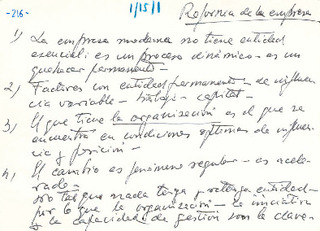 -216-
1/15/1
Reforma de la empresa
1) La empresa moderna no tiene entidad
esencial: es un proceso dinámico - es un
quehacer permanente -
2) Factores con entidad permanente - de influen-
cia variable - trabajo - capital -
3) El que tiene la organización es el que se
encuentra en condiciones óptimas de influen-
cia y posición -
4) El cambio es fenómeno regular - es acele-
rado -
que nada tenga y retenga entidad -
por lo que la organización - la iniciativa
y la capacidad de gestión son la clave -